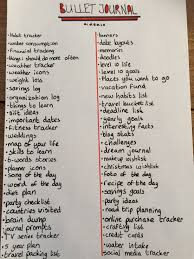 BULLET JOURNAL
#ideas
•Habit tracker
•water consumption
•financial tracking
•things i should do more often
•weather tracker
•weather icons
•weight loss
•savings log
•organization
•things to learn
•slit ideas
•important dates
•fitness tracker
•weddings
•map of your life
•skills to learn
•t-words stories
•planner icons
•song of the day
•word of the day
•diet plan
•party checklist
•countries visited
•brain dump
•journal prompts
•TV series tracker
•5 year plan
•travel packing list
•banners
•date layouts
•memories
•doodles
•level 10 life
•level 10 goals
•places you want to go
•vacation fund
•new habits list
•travel bucket list
•deadline
•yearly goals
•interesting facts
•blog stats
•challenges
•dream journal
•makeup wishlist
•christmas wishlist
•foto of the day
•recipe of the day
•savings goals
•party ideas
•road trip planning
•online purchase tracker
•credit cards
•water intake
•social media tracker